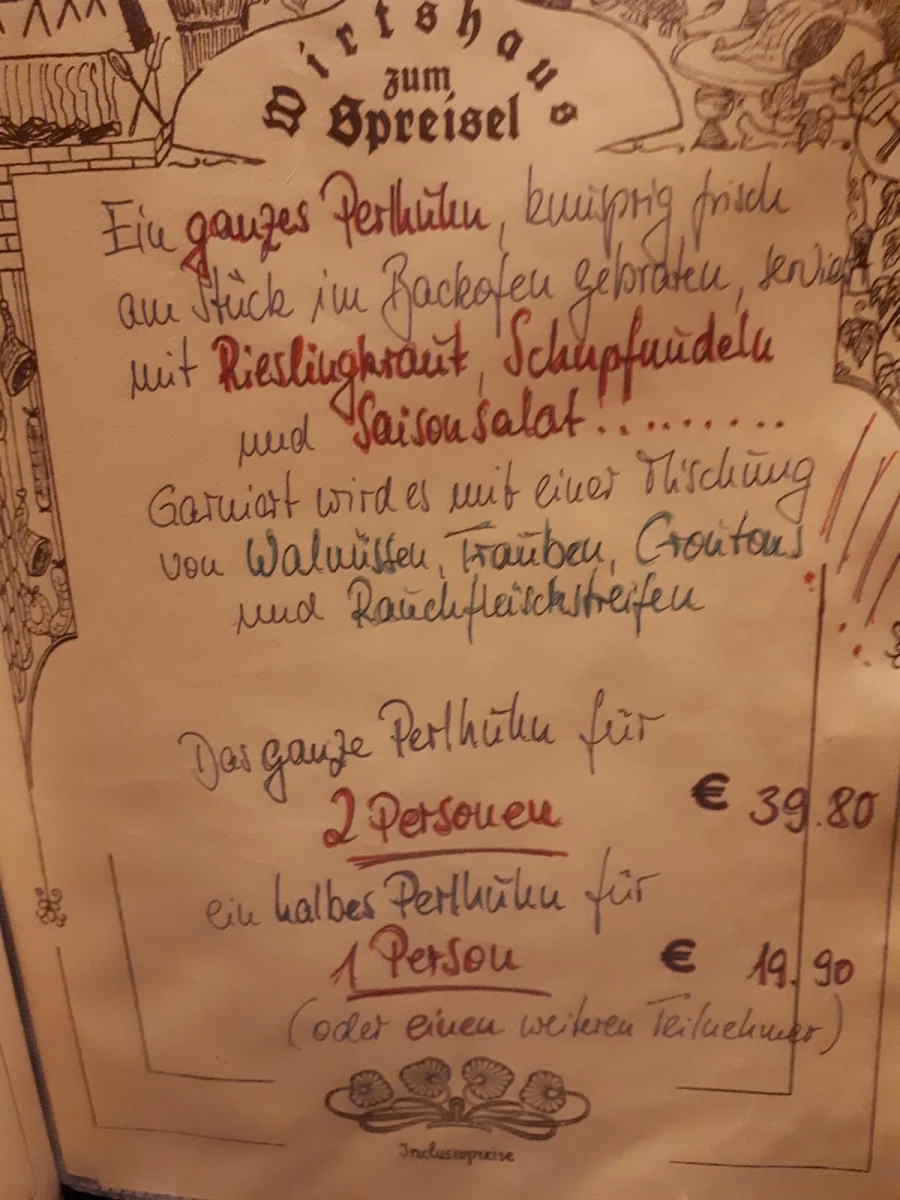 Wirtshaus
zum
Spreisel
Ein ganzes Perlhuhn, knusprig frisch
am Stück im Backofen gebraten, serviert
mit Rieslingkraut, Schupfnudeln
und Saisonsalat.........
Garniert wird es mit einer Mischung
von Walnüssen, Trauben, Croutons
und Rauchfleischstreifen
Das ganze Perlhuhn für
2 Personen € 39.80
ein halbes Perlhuhn für
1 Person € 19.90
(oder einen weiteren Teilnehmer)
Inclusivpreise